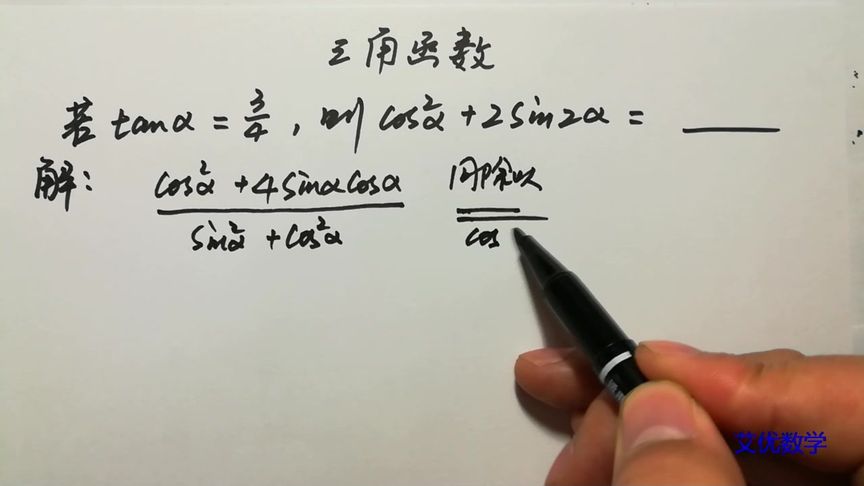 三角函数
若 tanα = 3/4 , 则 cos²α + 2sin2α = ____
解: (cos²α + 4sinαcosα)/(sin²α + cos²α) 同除以 cos
艾优数学